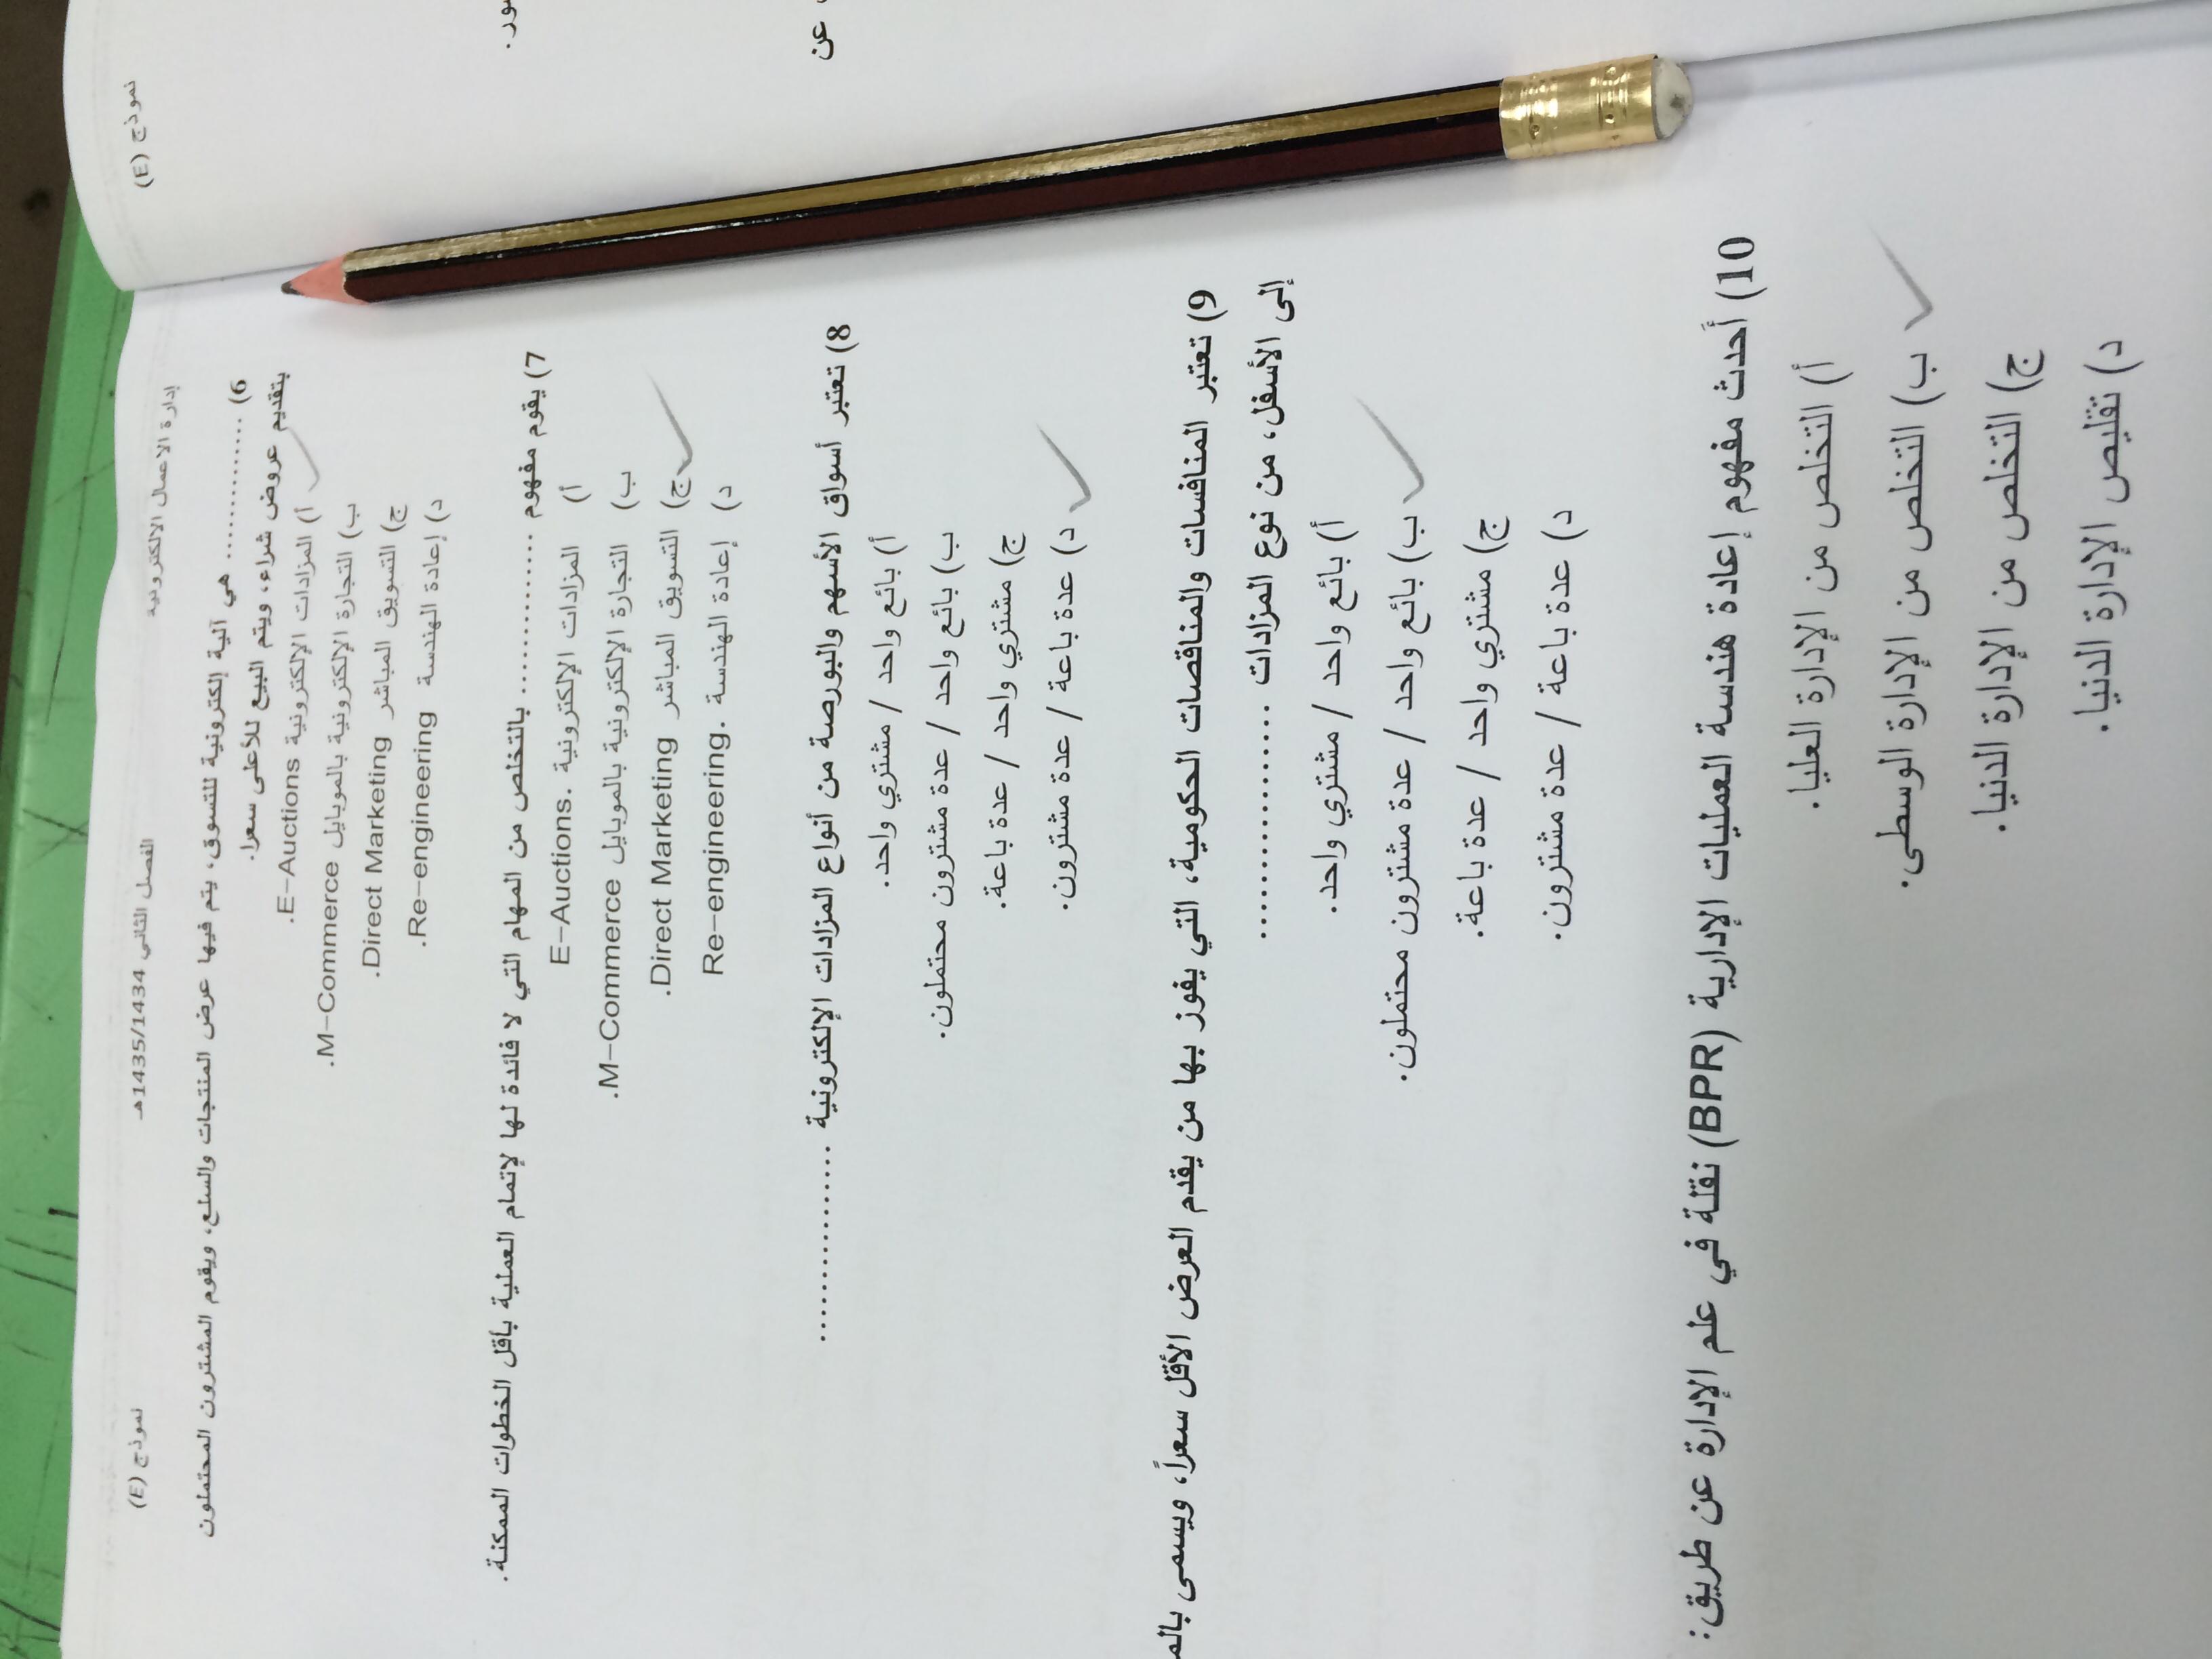 نموذج (E)
ور.
عن
إدارة الاعمال الالكترونية الفصل الثاني 1435/1434هـ نموذج (E)
6) ............. هي آلية إلكترونية للتسوق، يتم فيها عرض المنتجات والسلع، ويقوم المشترون المحتملون
بتقديم عروض شراء، ويتم البيع للأعلى سعرا.
أ) المزادات الإلكترونية E-Auctions.
ب) التجارة الإلكترونية بالموبايل M-Commerce.
ج) التسويق المباشر Direct Marketing.
د) إعادة الهندسة Re-engineering.
7) يقوم مفهوم ............. بالتخلص من المهام التي لا فائدة لها لإتمام العملية بأقل الخطوات الممكنة.
أ) المزادات الإلكترونية .E-Auctions
ب) التجارة الإلكترونية بالموبايل M-Commerce.
ج) التسويق المباشر Direct Marketing.
د) إعادة الهندسة .Re-engineering
8) تعتبر أسواق الأسهم والبورصة من أنواع المزادات الإلكترونية ................
أ) بائع واحد / مشتري واحد.
ب) بائع واحد / عدة مشترون محتملون.
ج) مشتري واحد / عدة باعة.
د) عدة باعة / عدة مشترون.
9) تعتبر المنافسات والمناقصات الحكومية، التي يفوز بها من يقدم العرض الأقل سعراً، ويسمى بالم
إلى الأسفل، من نوع المزادات ..................
أ) بائع واحد / مشتري واحد.
ب) بائع واحد / عدة مشترون محتملون.
ج) مشتري واحد / عدة باعة.
د) عدة باعة / عدة مشترون.
10) أحدث مفهوم إعادة هندسة العمليات الإدارية (BPR) نقلة في علم الإدارة عن طريق:
أ) التخلص من الإدارة العليا.
ب) التخلص من الإدارة الوسطى.
ج) التخلص من الإدارة الدنيا.
د) تقليص الإدارة الدنيا.